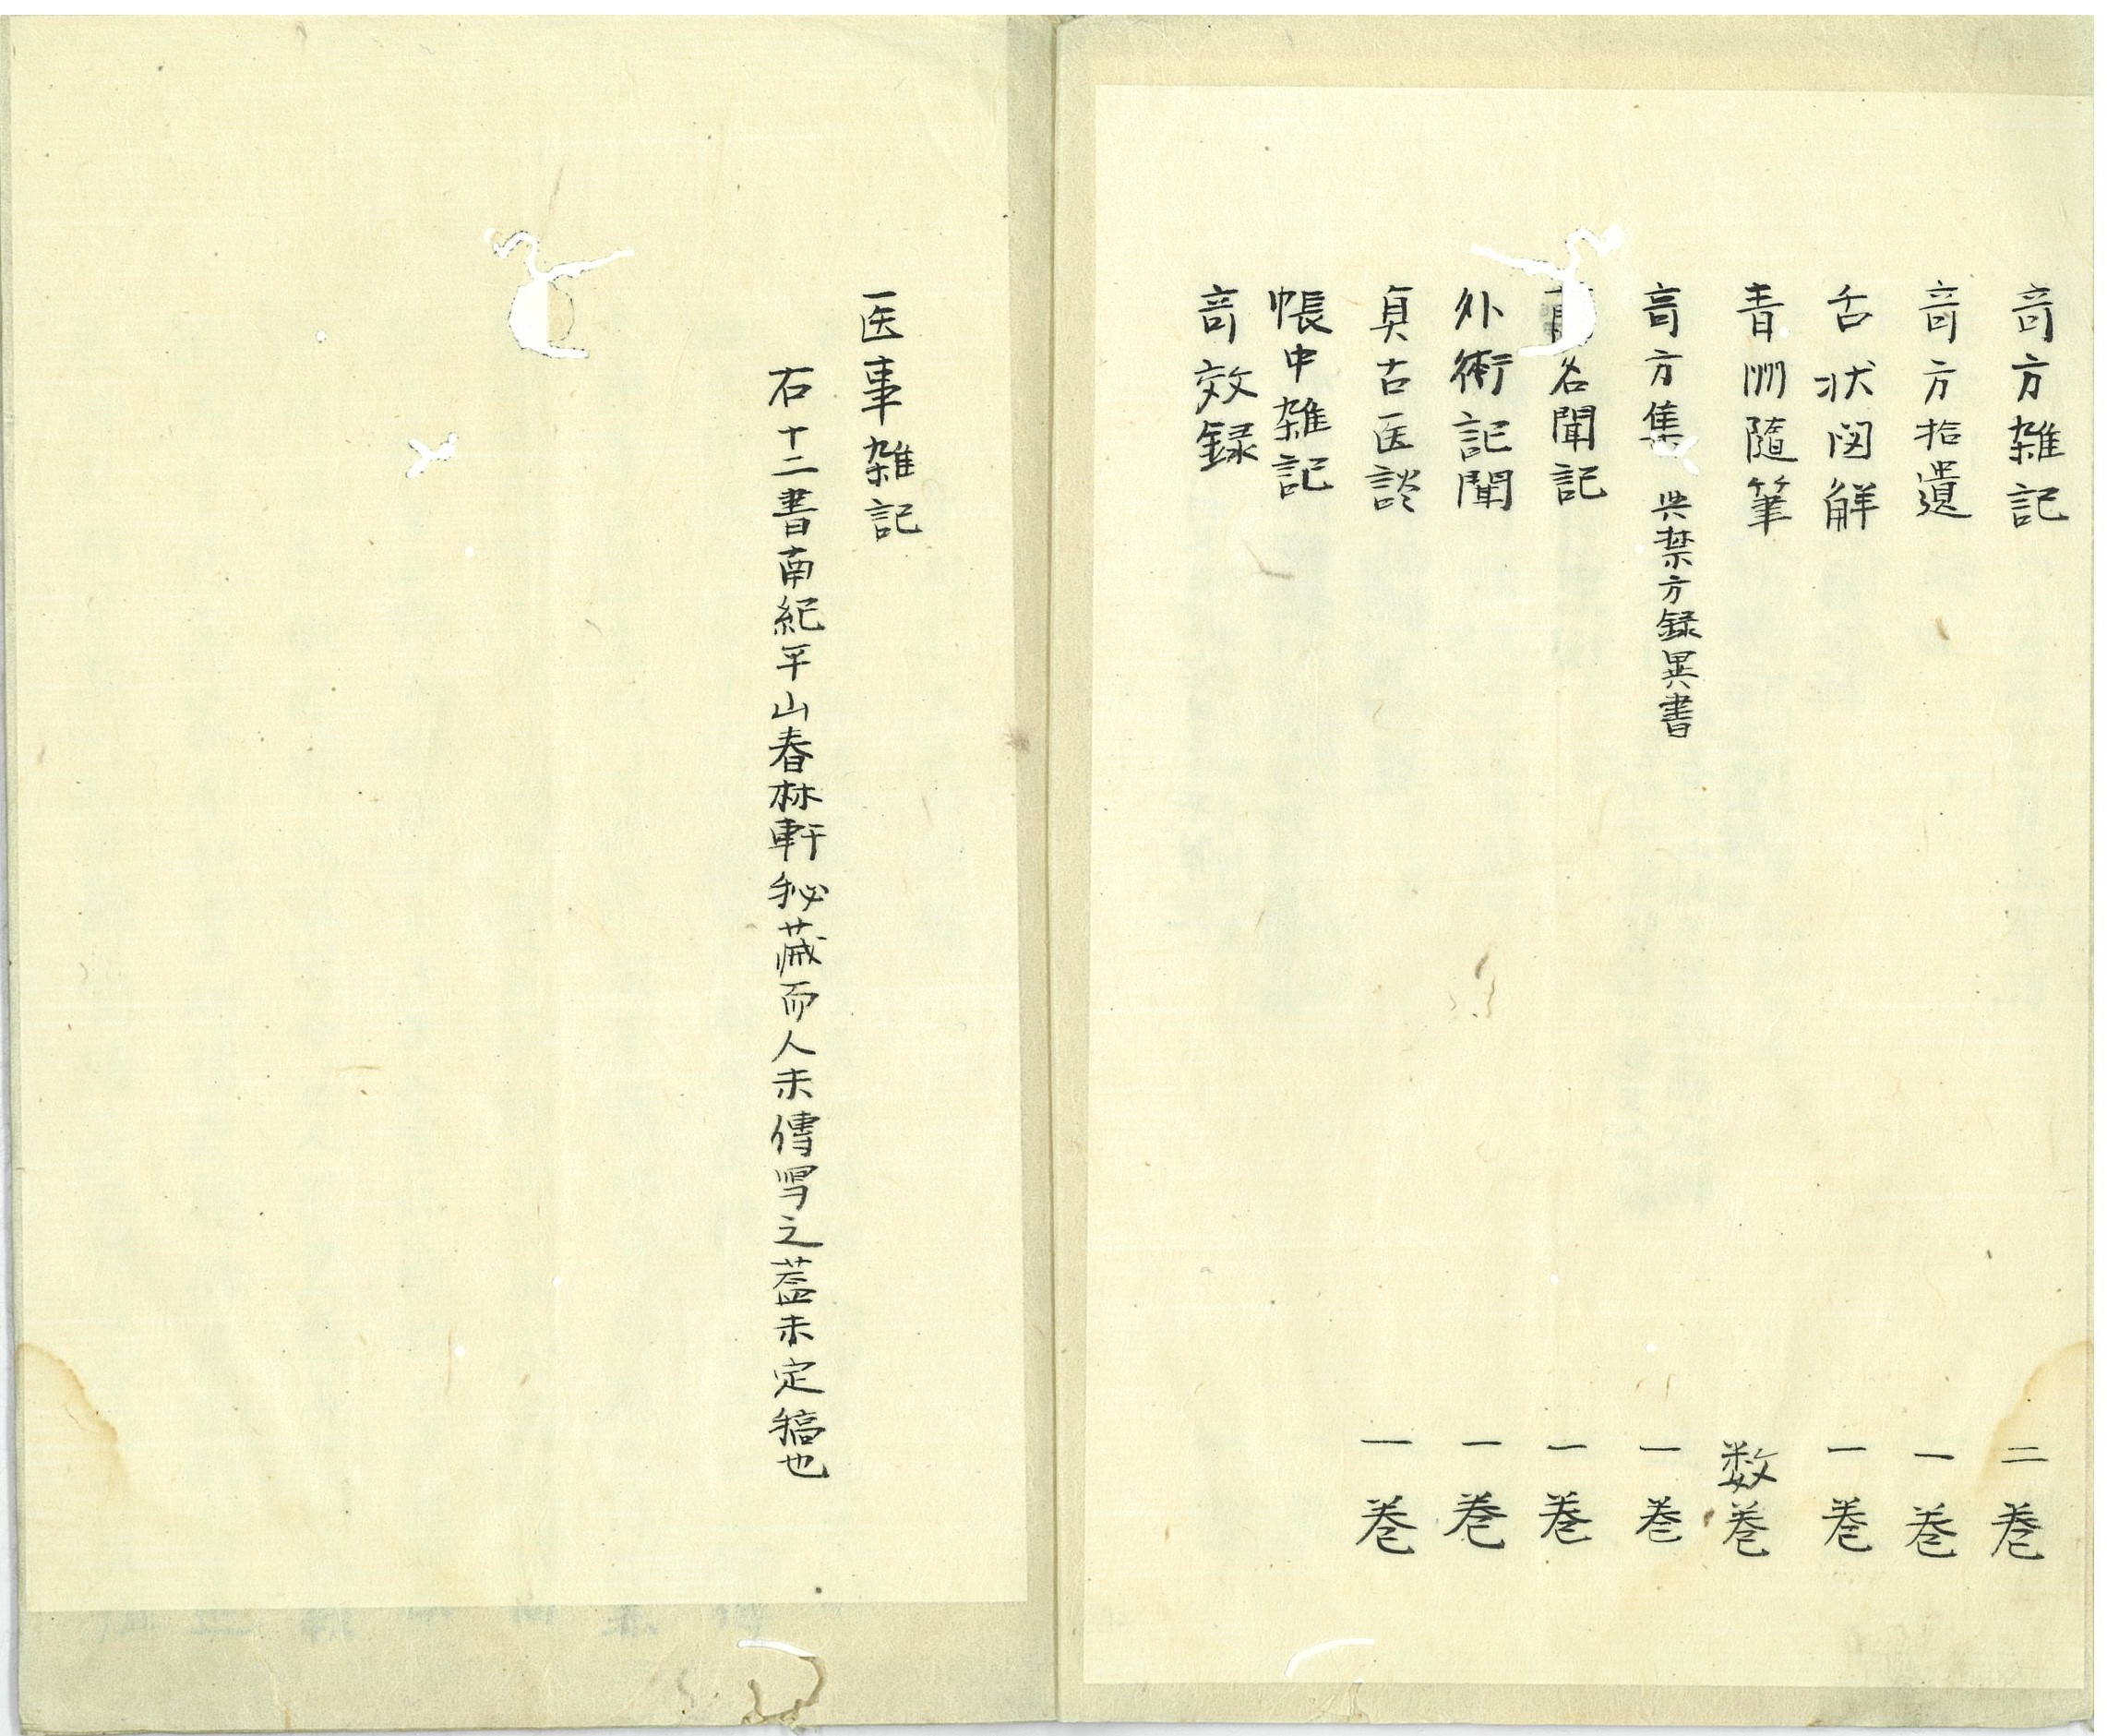 竒方雑記 二巻
竒方拾遺 一巻
舌状図解 一巻
青洲随筆 数巻
竒方集 與禁方録異書 一巻
名聞記 一巻
外術記聞 一巻
貞古医談 一巻
帳中雑記
竒效録
医事雑記
右十二書南紀平山春林軒秘蔵而人未傳写之蓋未定稿也